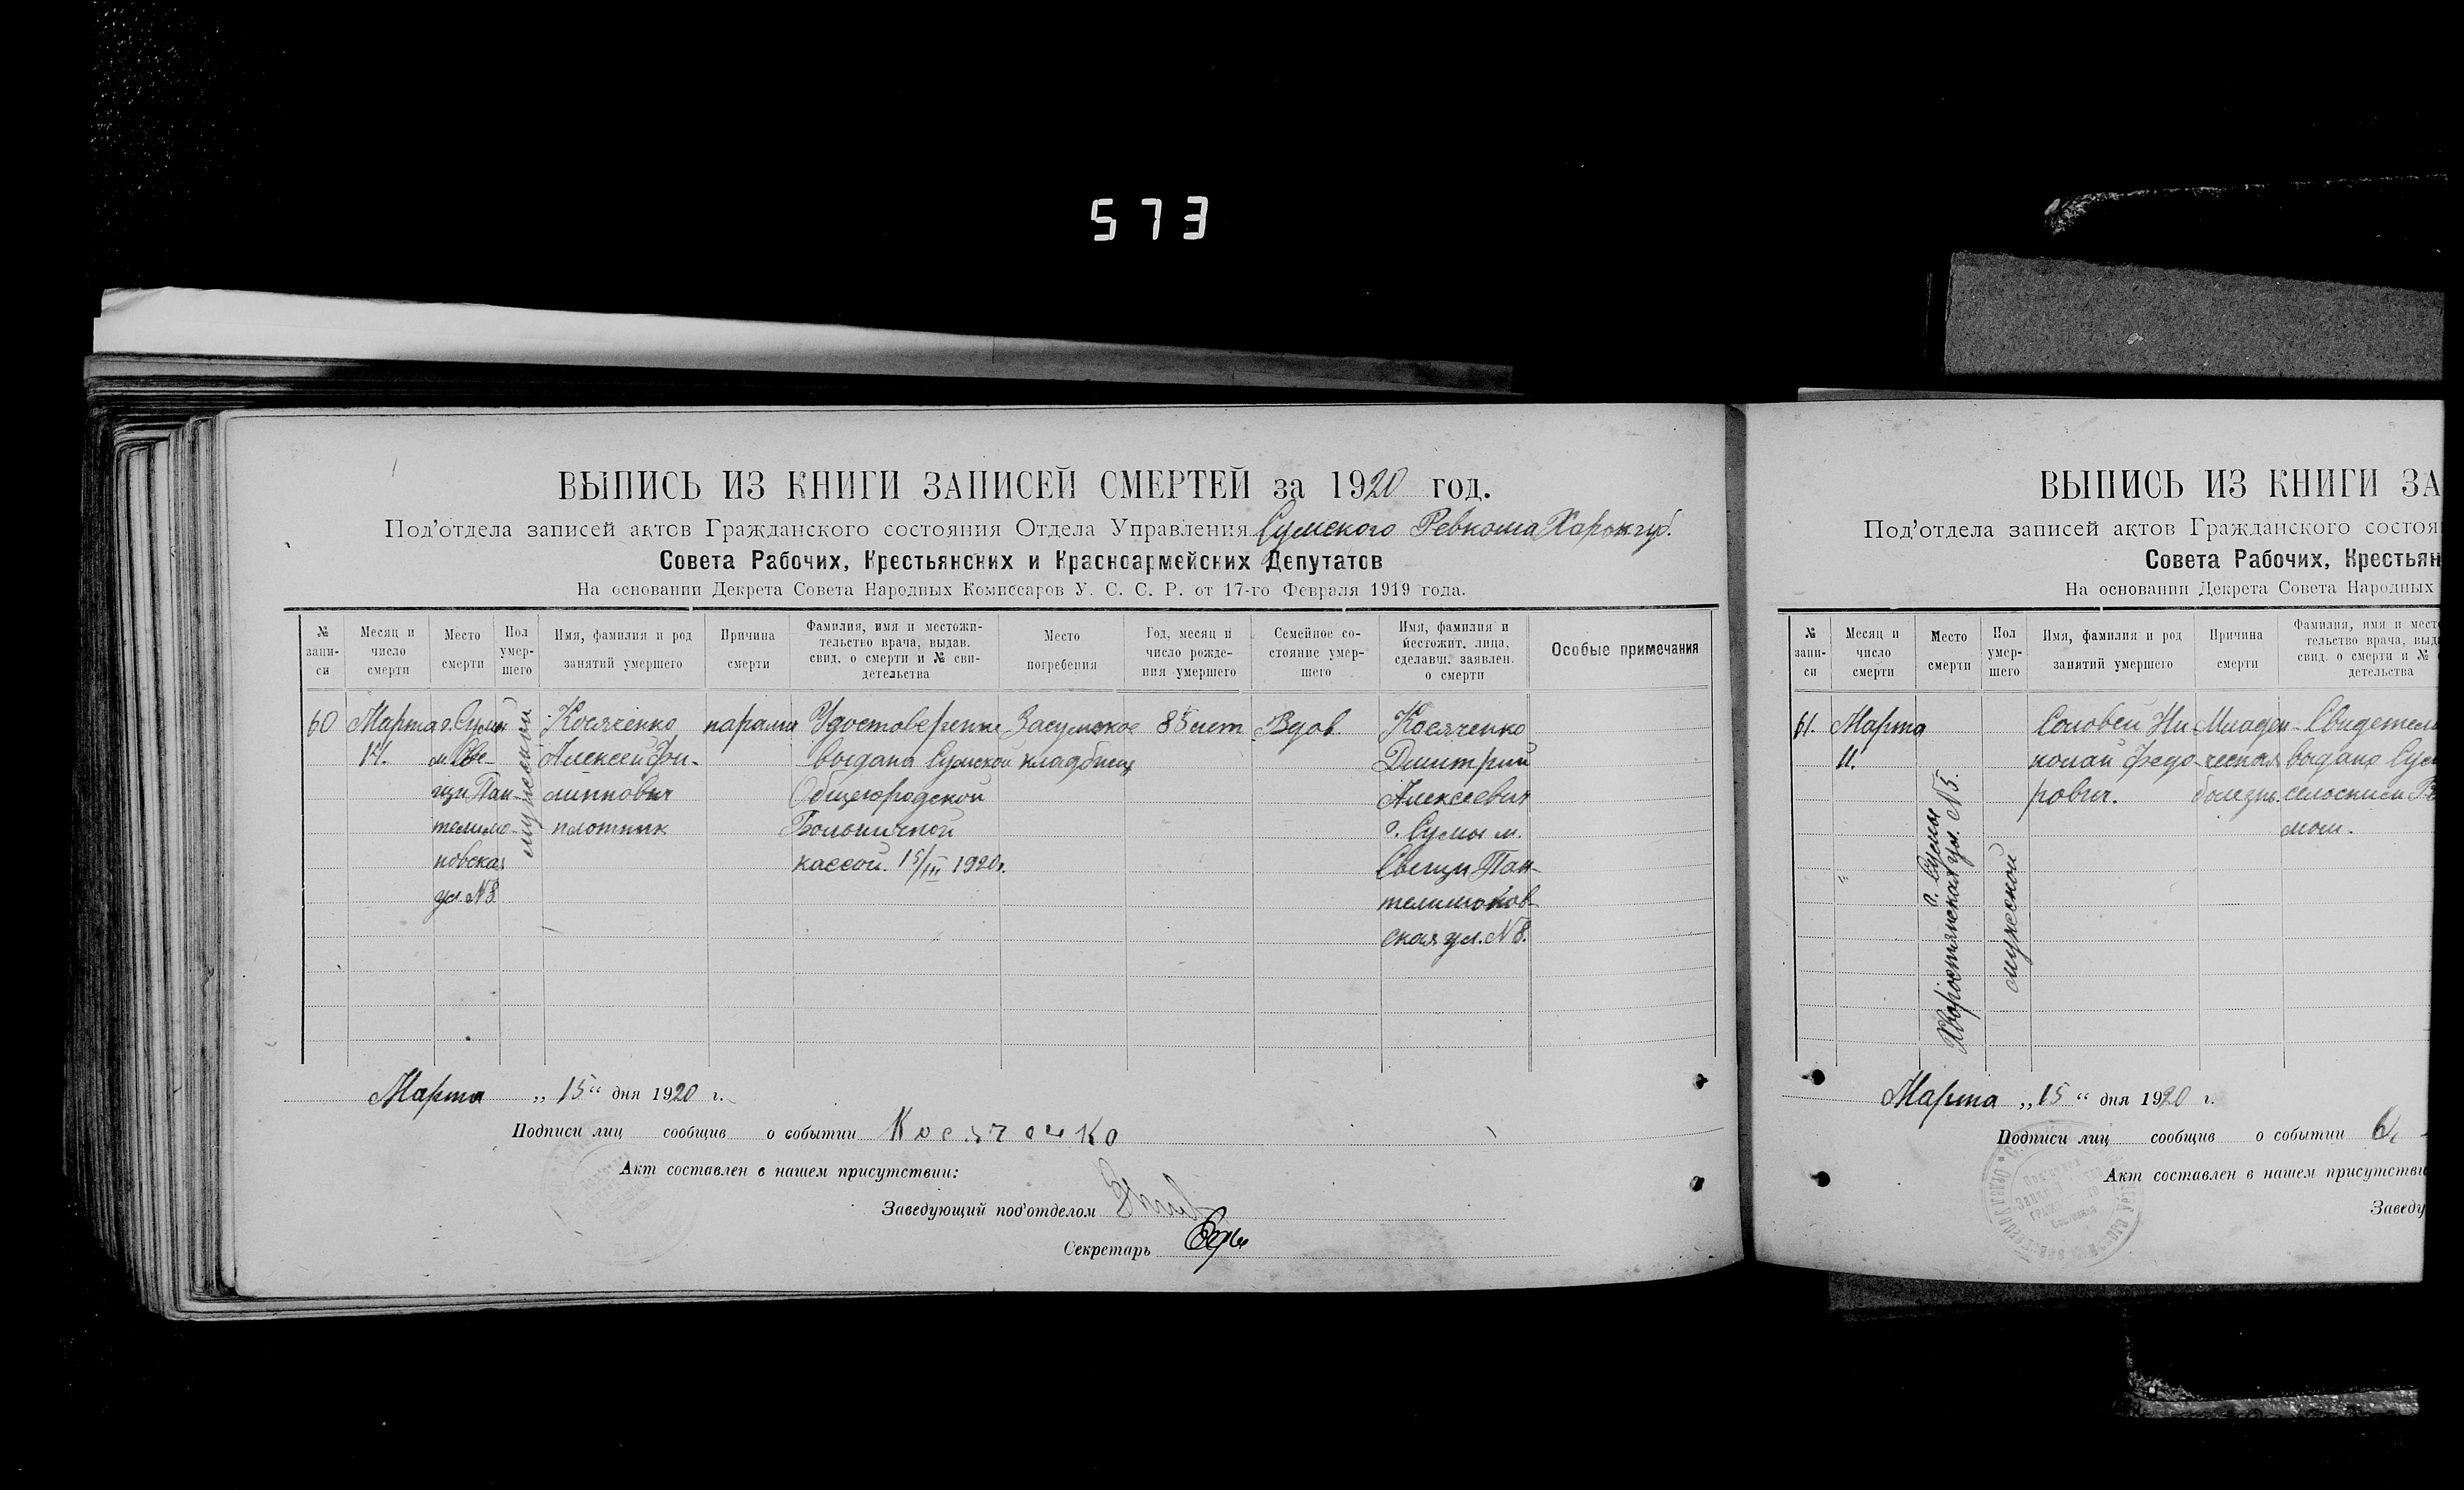 573
ВЫПИСЬ ИЗ КНИГИ ЗАПИСЕЙ СМЕРТЕЙ за 1920 год.
Под'отдела записей актов Гражданского состояния Отдела Управления Сумского Ревкома Харьк губ.
Совета Рабочих, Крестьянских и Красноармейских Депутатов
На основании Декрета Совета Народных Комиссаров У. С. С. Р. от 17-го Февраля 1919 года.
№ запи-си
Месяц и число смерти
Место смерти
Пол умер-шего
Имя, фамилия и род занятий умершего
Причина смерти
Фамилия, имя и местожи-тельство врача, выдав. свид. о смерти и № сви-детельства
Место погребения
Год, месяц и число рожде-ния умершего
Семейное со-стояние умер-шего
Имя, фамилия и местожит. лица, сделавш. заявлен. о смерти
Особые примечания
60
Марта
14.
г. Сумы
м.
Пан-
телимо-
новская
ул. №8
мужеской
Косяченко
Алексей Фи-
липпович
плотник
Удостоверение
выдано Сумской
Общегородской
Больничной
кассой. 15/III 1920г.
Засумское
кладбище
85 лет
Вдов.
Косяченко
Димитрий
Алексеевич
г. Сумы м.
Пан-
телимонов-
ская ул. №8.
Марта „15“ дня 1920 г.
Подписи лиц сообщив о событии Косяченко
Акт составлен в нашем присутствии:
Заведующий под'отделом
Секретарь
ВЫПИСЬ ИЗ КНИГИ ЗА
Под'отдела записей актов Гражданского состоя
Совета Рабочих, Крестьян
На основании Декрета Совета Народных
№ запи-си
Месяц и число смерти
Место смерти
Пол умер-шего
Имя, фамилия и род занятий умершего
Причина смерти
Фамилия, имя и мест
тельство врача, выд
свид. о смерти и №
детельства
61.
Марта
11.
г. Сумы
ул. №5.
мужеской
Соловей Ни-
колай Федо-
рович.
Младен-
ческая
болезнь.
Свидетель
выдано Сум
сельским Ре
ком.
Марта „15“ дня 1920 г.
Подписи лиц сообщив о событии
Акт составлен в нашем присутстви
Заведу